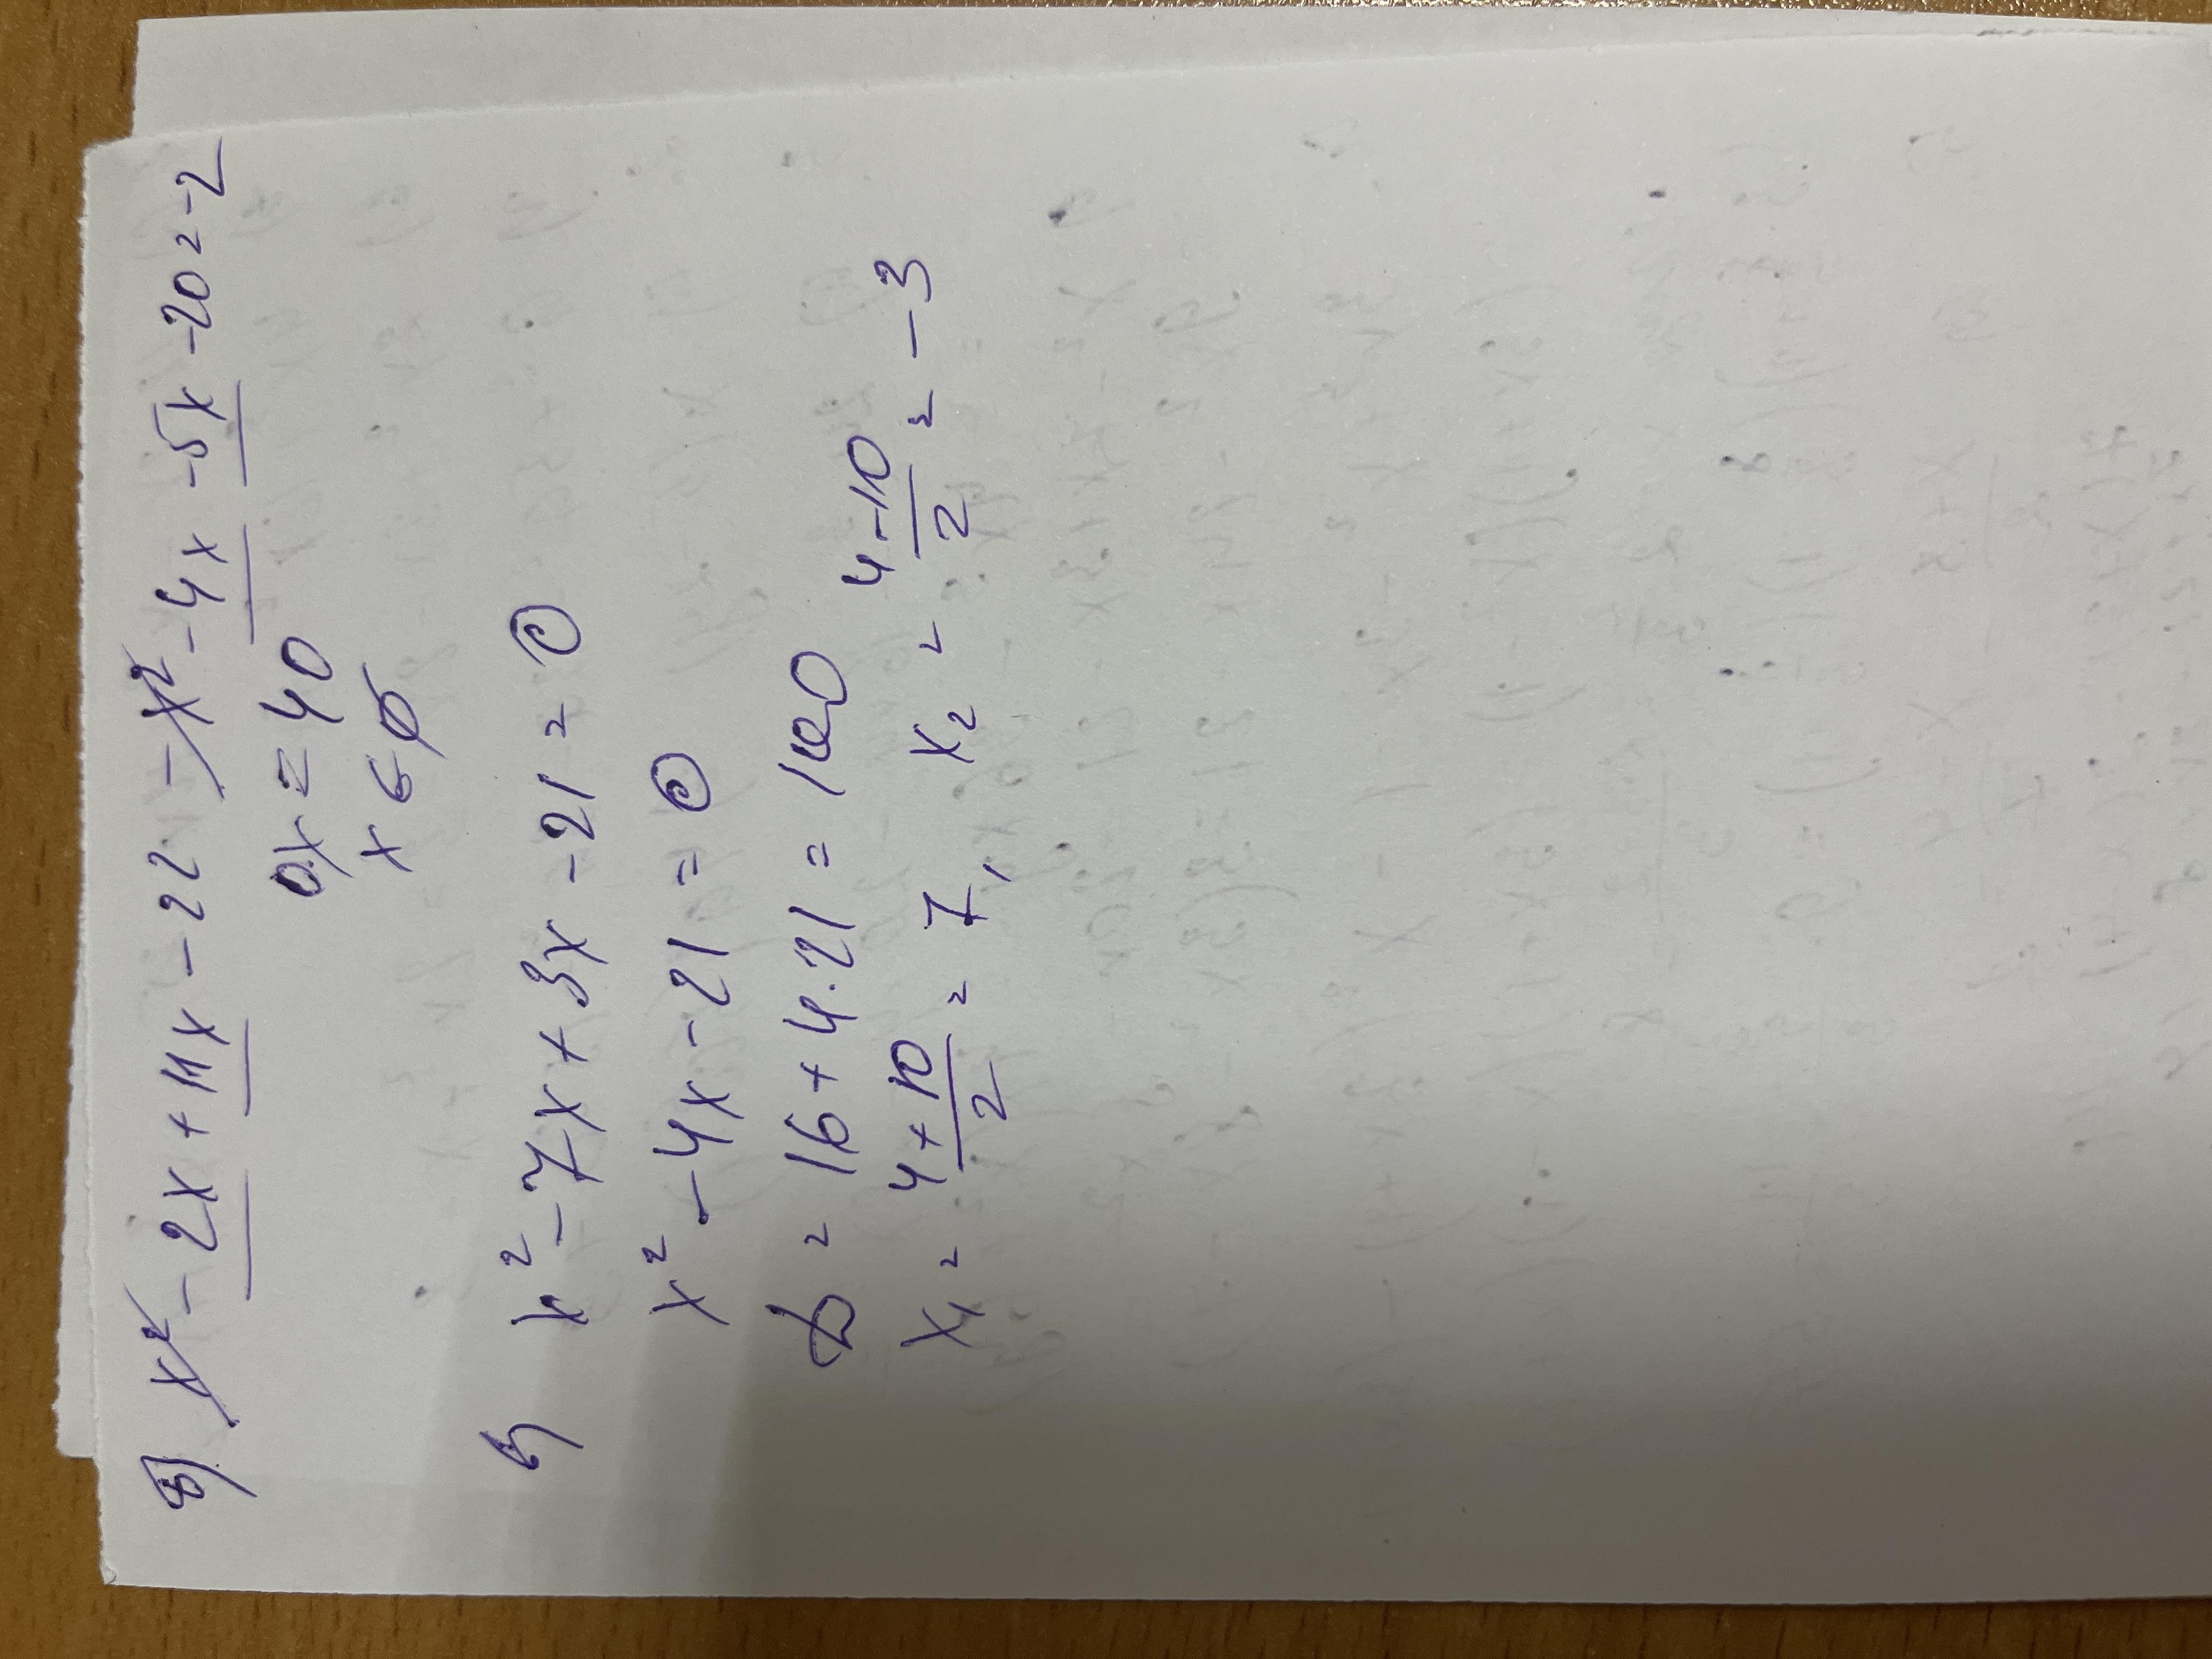 8) x² - 2x + 11x - 22 - x² - 4x - 5x - 20 = -2
0x = 40
x ∈ ∅
x² - 7x + 3x - 21 = 0
x² - 4x - 21 = 0
D = 16 + 4 · 21 = 100
x₁ = (4 + 10)/2 = 7, x₂ = (4 - 10)/2 = -3